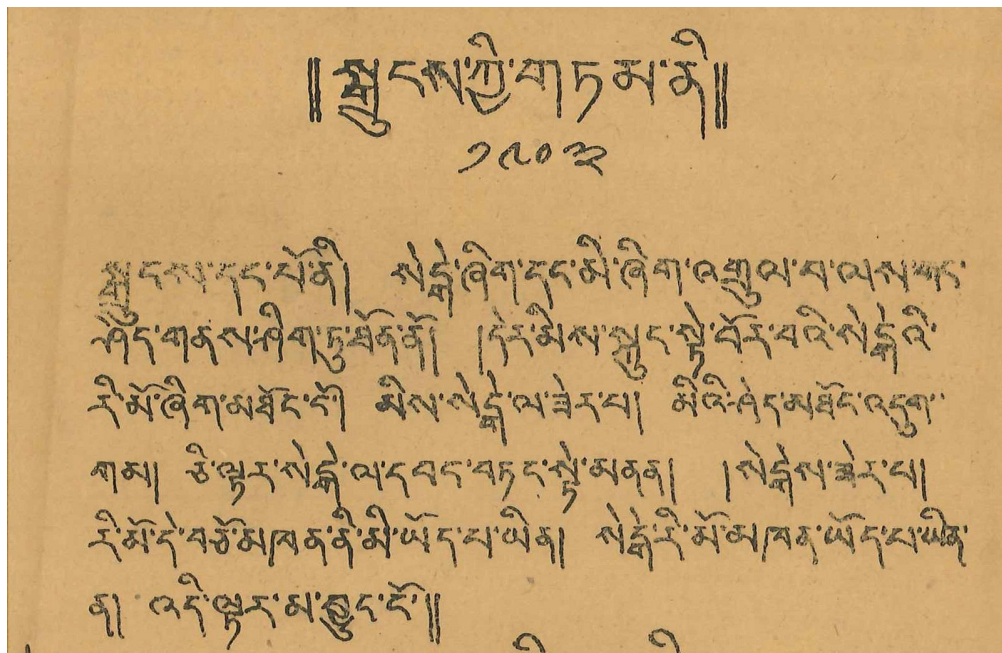 ༎སྒྲུངས་ཀྱི་གཏམ་ནི༎
༡༩༠༣
སྒྲུངས་དང་པོ་ནི། སེངྒེ་ཞིག་དང་མི་ཞིག་འགྲུལ་བ་ལས་གང་
ཤེད་གནས་ཤིག་ཏུ་ཐོན་ནོ། །དེར་མིས་སླུང་སྟེ་བོར་བའི་སེངྒེའི་
རི་མོ་ཞིག་མཐོང་ངོ། མིས་སེངྒེ་ལ་ཟེར་པ། མིའི་ཤེད་མཐོང་འདུག་
གམ། ཅི་ལྟར་སེངྒེ་ལ་དབང་བཏང་སྟེ་མནན། །སེངྒེས་ཟེར་པ།
རི་མོ་དེ་བཅོ་མཁན་ནི་མི་ཡོད་པ་ཡིན། སེངྒེ་རི་མོ་མཁན་ཡོད་པ་ཡིན་
ན། འདི་ལྟར་མ་བྱུང་ངོ༎